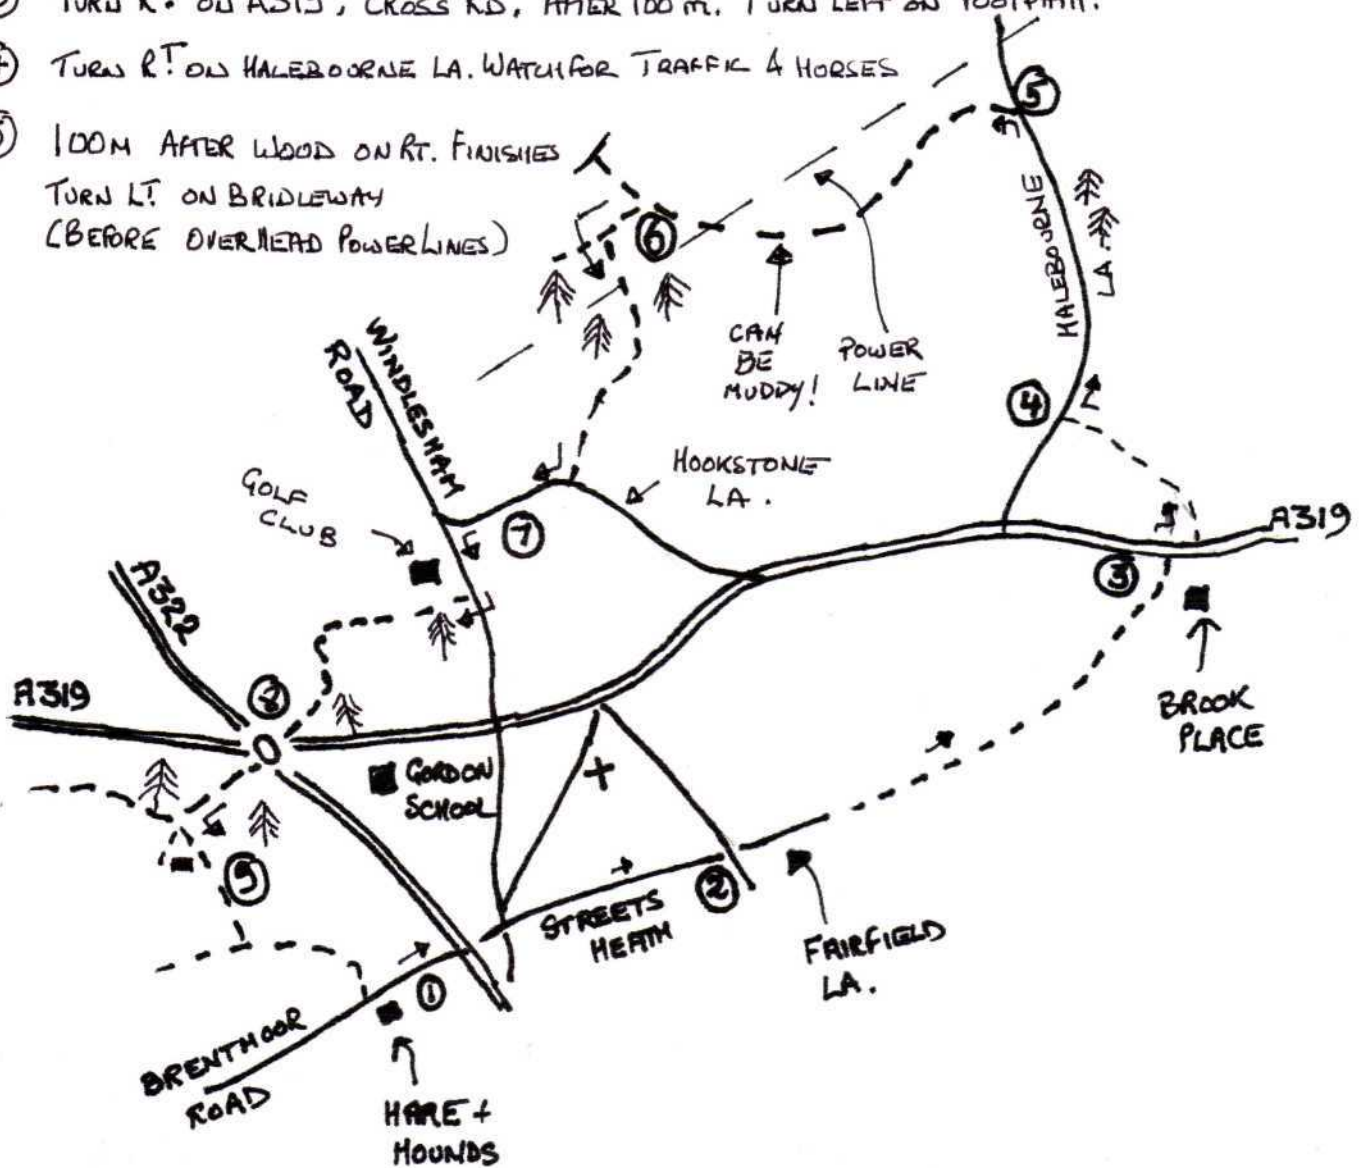 TURN RT. ON A319, CROSS RD. AFTER 100 M. TURN LEFT ON FOOTPATH.
TURN RT ON HALEBOURNE LA. WATCH FOR TRAFFIC & HORSES
100M AFTER WOOD ON RT. FINISHES
TURN LT. ON BRIDLEWAY
(BEFORE OVERHEAD POWER LINES)
5
6
HALEBOURNE
LA.
CAN
BE
MUDDY!
POWER
LINE
WINDLESHAM
ROAD
4
HOOKSTONE
LA.
GOLF
CLUB
7
A319
3
A322
A319
8
BROOK
PLACE
GORDON
SCHOOL
9
2
STREETS
HEATH
FAIRFIELD
LA.
1
BRENTMOOR
ROAD
HARE +
HOUNDS